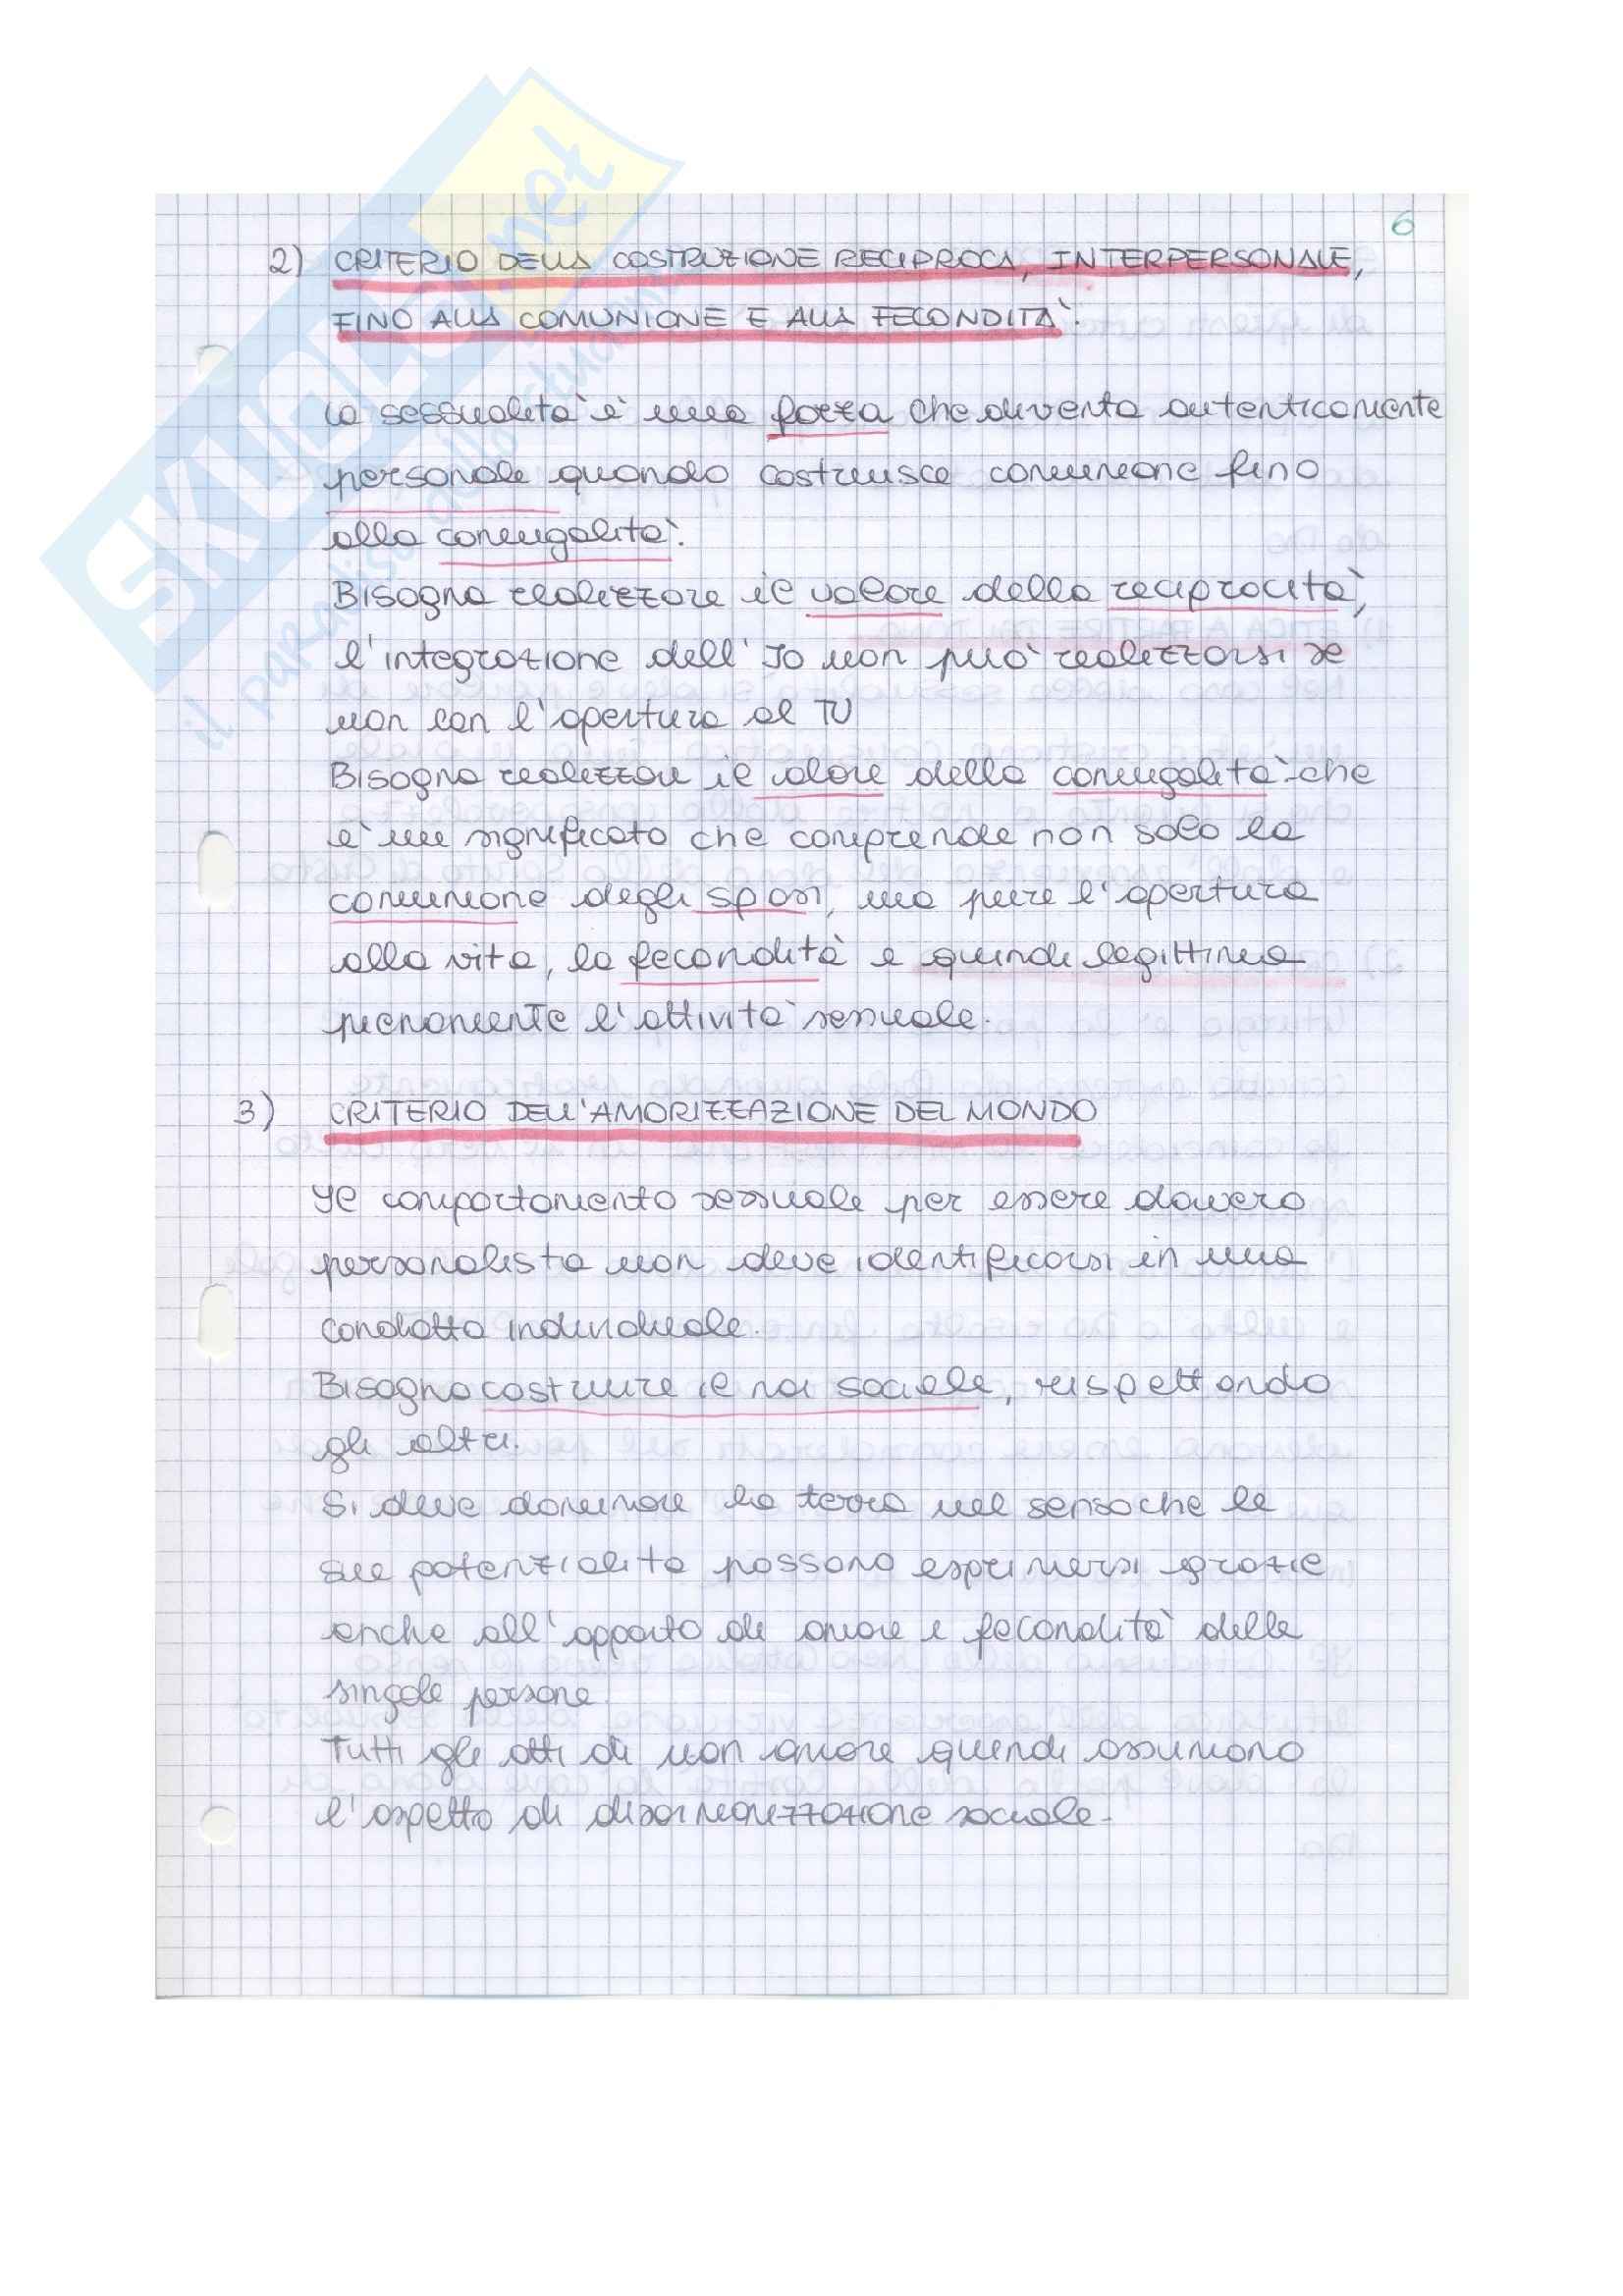 6
2) CRITERIO DELLA COSTRUZIONE RECIPROCA, INTERPERSONALE,
FINO ALLA COMUNIONE E ALLA FECONDITÀ.
La sessualità è una forza che diventa autenticamente
personale quando costruisce comunione fino
alla coniugalità.
Bisogna realizzare il valore della reciprocità,
l'integrazione dell'Io non può realizzarsi se
non con l'apertura al TU
Bisogna realizzare il valore della coniugalità che
è un significato che comprende non solo la
comunione degli sposi, ma pure l'apertura
alla vita, la fecondità e quindi legittima
pienamente l'attività sessuale.
3) CRITERIO DELL'AMORIZZAZIONE DEL MONDO
Il comportamento sessuale per essere davvero
personalista non deve identificarsi in una
condotta individuale.
Bisogna costruire il noi sociale, rispettando
gli altri.
Si deve dominare la terra nel senso che le
sue potenzialità possano esprimersi grazie
anche all'apporto di amore e fecondità delle
singole persone.
Tutti gli atti di non amore quindi assumono
l'aspetto di disarmonizzazione sociale.
SKUOLA.net
il paradiso dello studente